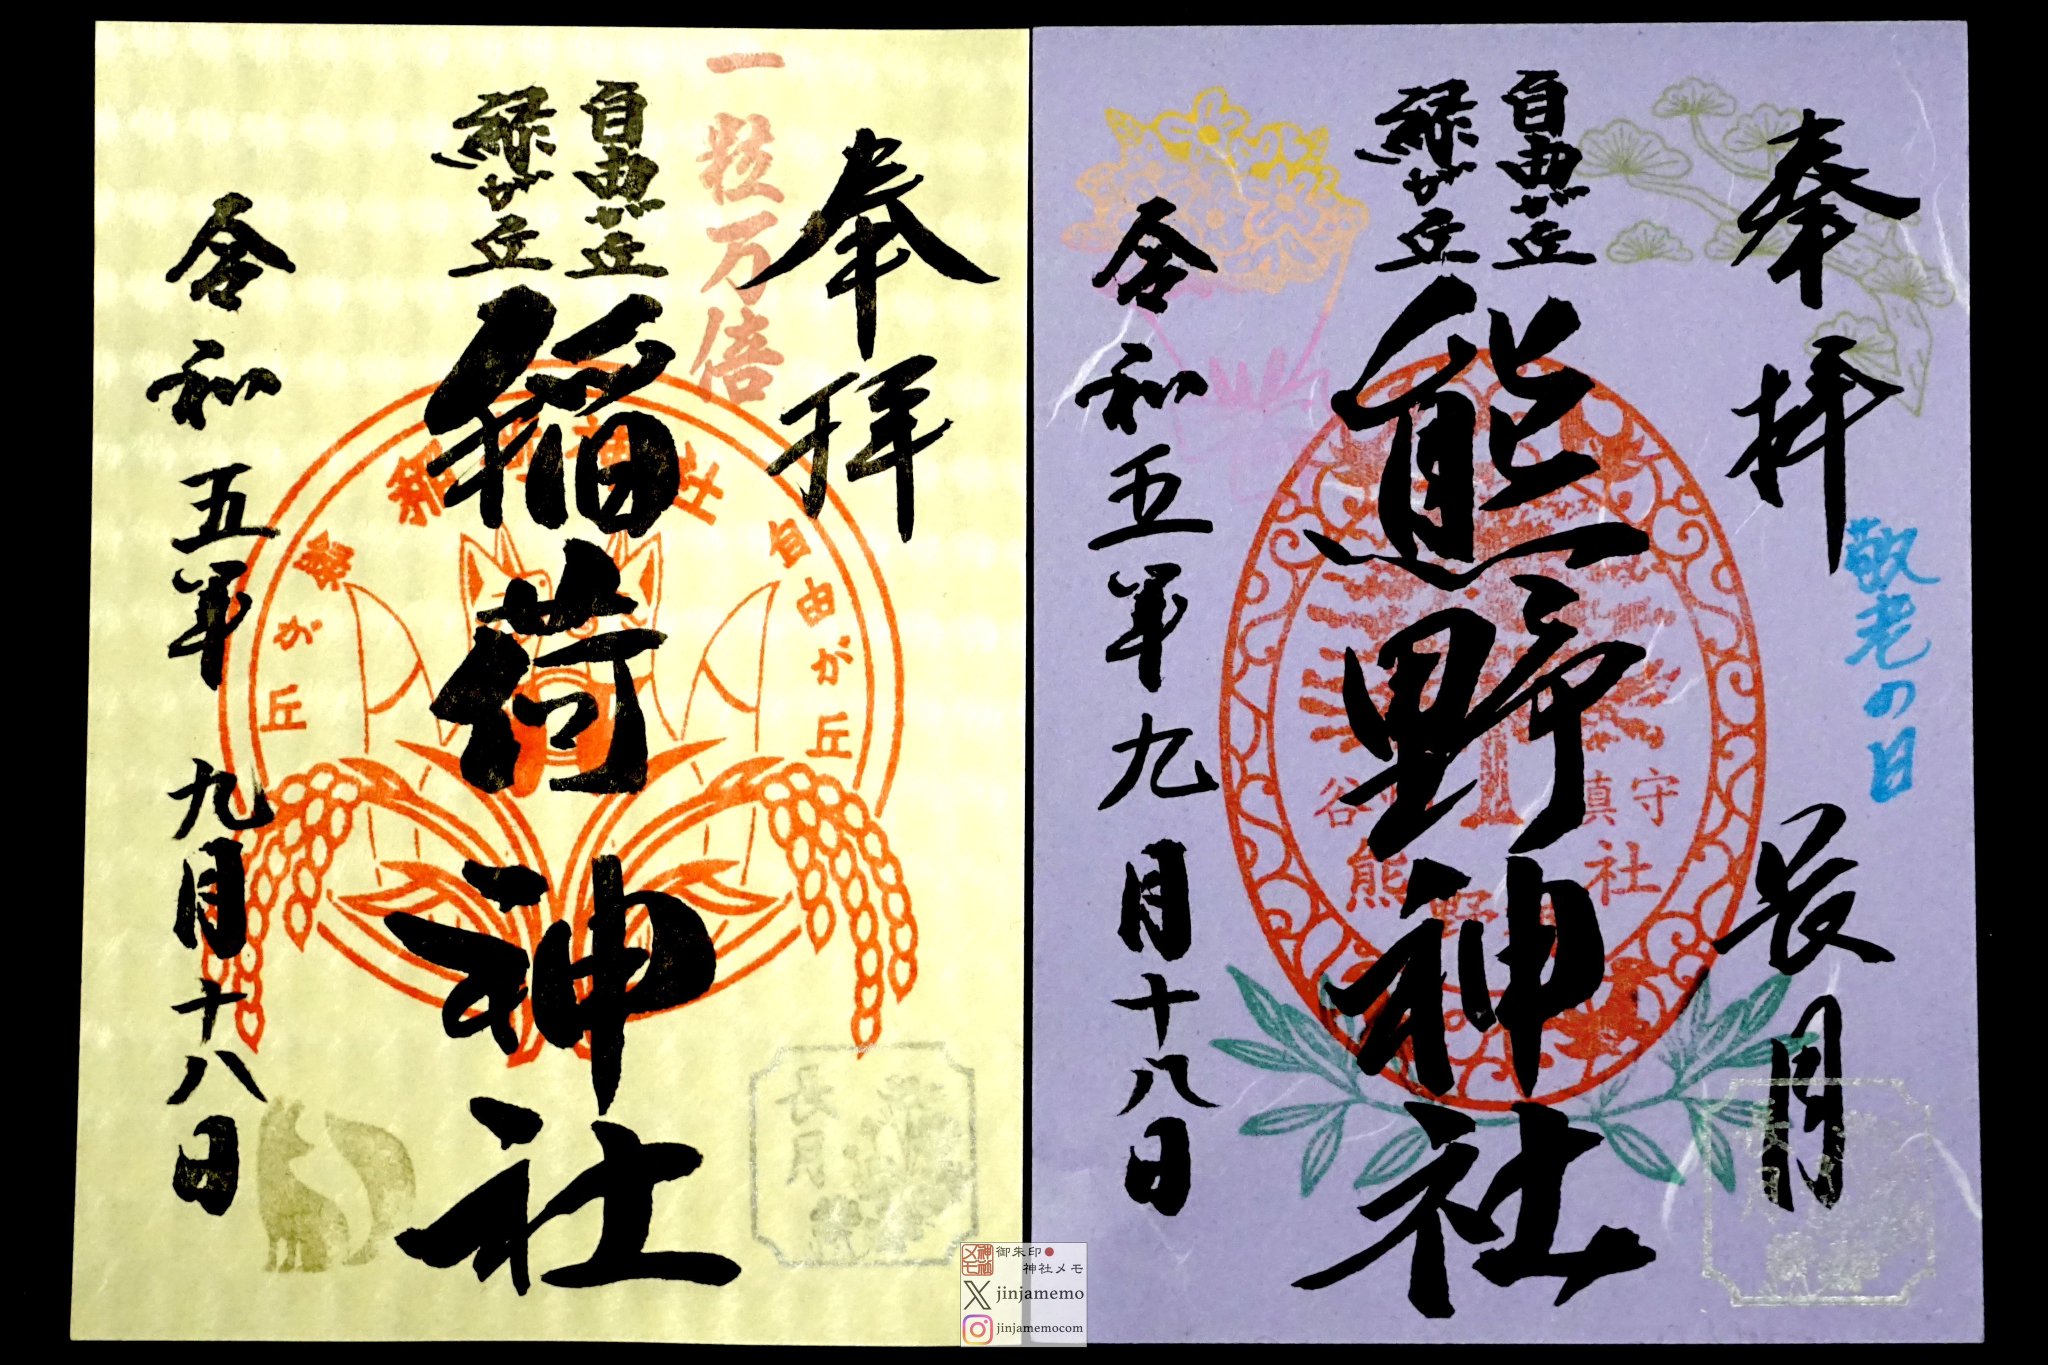 奉拝
一粒万倍
自由が丘
緑が丘
稲荷神社
令和五年九月十八日
稲荷神社
自由が丘
緑が丘
長月
奉拝
敬老の日
長月
自由が丘
緑が丘
熊野神社
令和五年九月十八日
鎮守
熊野
社
御朱印
神社メモ
jinjamemo
jinjamemocom